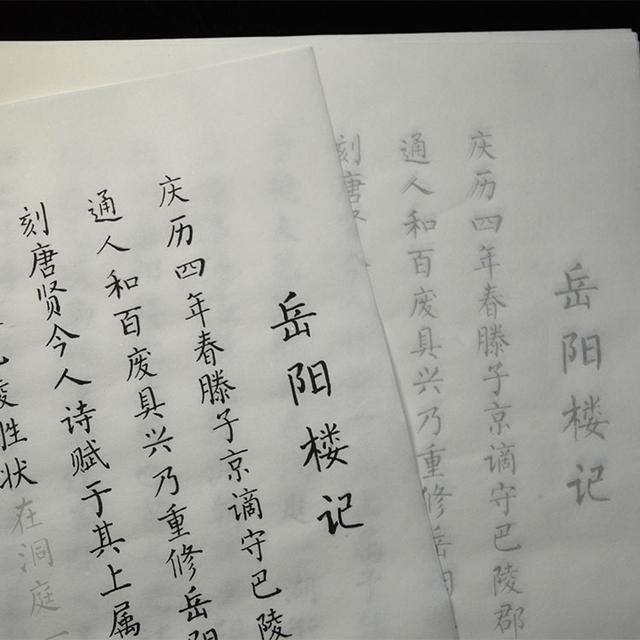 岳阳楼记
庆历四年春滕子京谪守巴陵郡
通人和百废具兴乃重修岳阳
刻唐
岳阳楼记
庆历四年春滕子京谪守巴陵
通人和百废具兴乃重修岳阳
刻唐贤今人诗赋于其上属
胜状在洞庭一